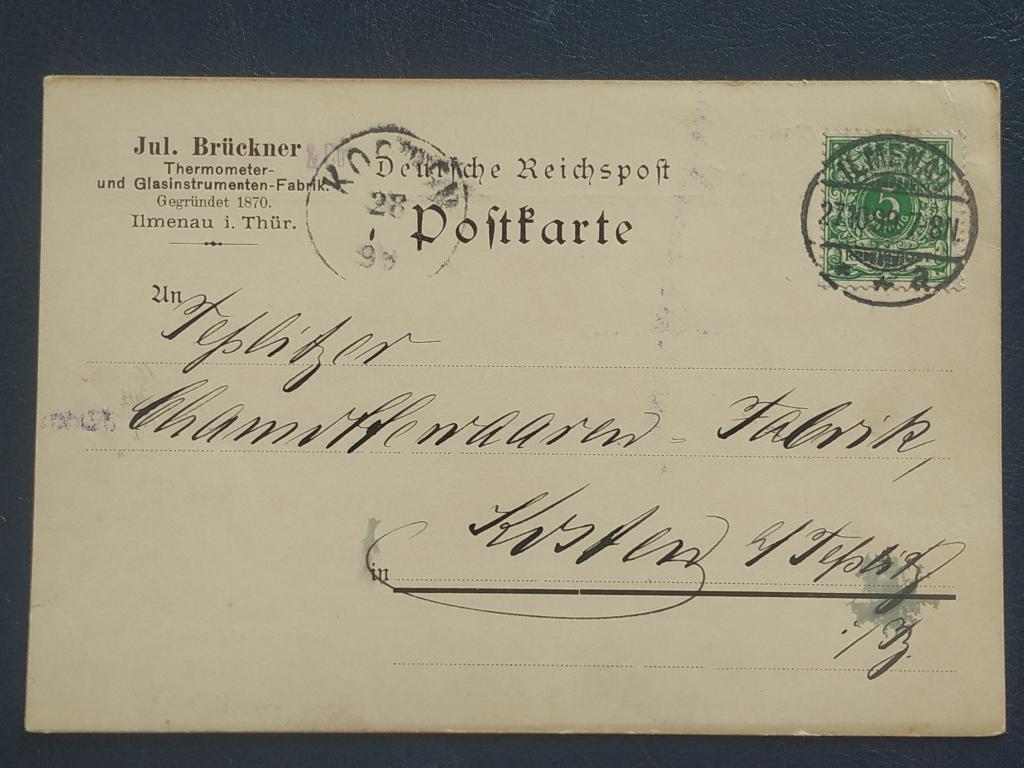 Jul. Brückner
& Co
Thermometer-
und Glasinstrumenten-Fabrik.
Gegründet 1870.
Ilmenau i. Thür.
KOSTEN
28
98
Deutsche Reichspost
Postkarte
ILMENAU
27.10.98.7-8N.
* * a
5
An
Teplitzer
Chamottewaaren-Fabrik,
in Kosten b/Teplitz
i/B.